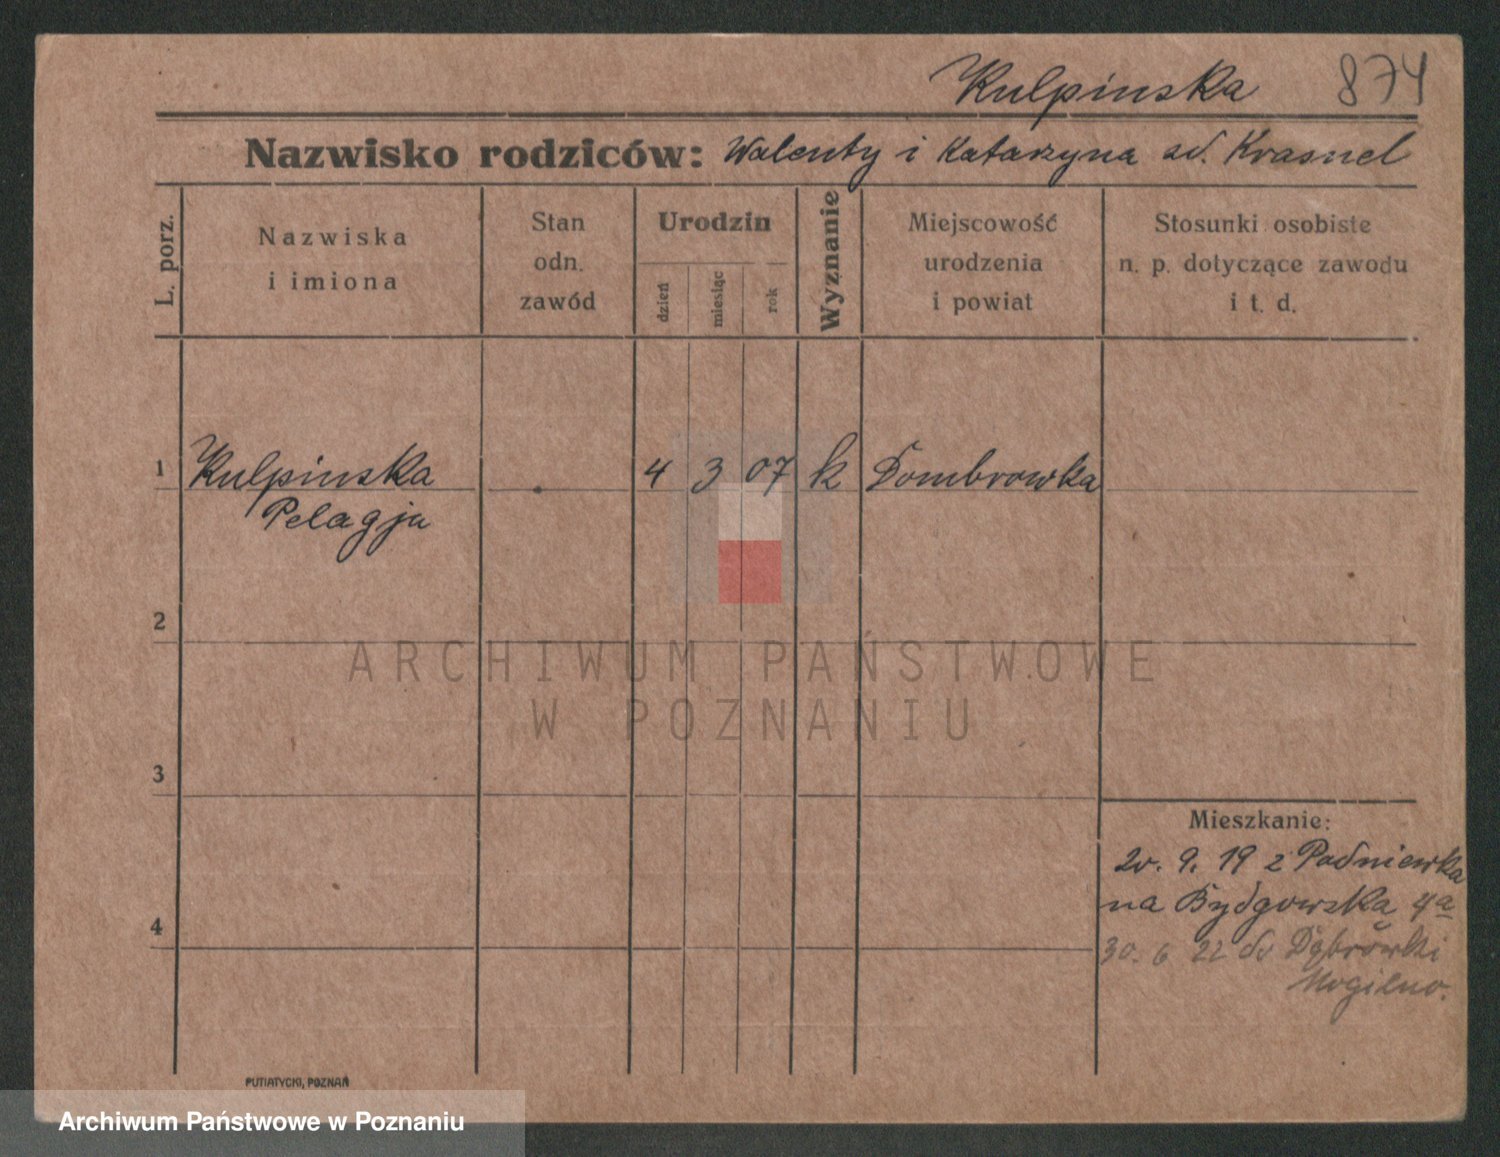 Kulpinska 874
Nazwisko rodziców: Walenty i Katarzyna Krasnel
L. porz.
Nazwiska
i imiona
Stan
odn.
zawód
Urodzin
dzień
miesiąc
rok
Wyznanie
Miejscowość
urodzenia
i powiat
Stosunki osobiste
n. p. dotyczące zawodu
i t. d.
1 Kulpinska 4 3 07 k Dombrowka
Pelagja
2
ARCHIWUM PAŃSTWOWE
W POZNANIU
3
Mieszkanie:
20. 9. 19 z Padniewka
na Bydgowską 4a
4
30. 6 22 do Dąbrówki
Mogilno.
PUTIATYCKI, POZNAŃ
Archiwum Państwowe w Poznaniu